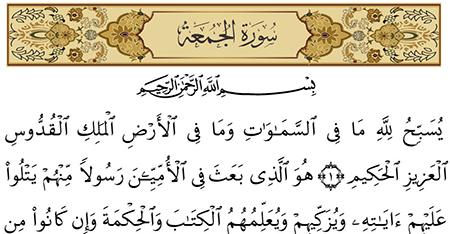 سُورَةُ الجُمُعَةِ
بِسْمِ اللَّهِ الرَّحْمَٰنِ الرَّحِيمِ
يُسَبِّحُ لِلَّهِ مَا فِى ٱلسَّمَٰوَٰتِ وَمَا فِى ٱلْأَرْضِ ٱلْمَلِكِ ٱلْقُدُّوسِ
ٱلْعَزِيزِ ٱلْحَكِيمِ ﴿١﴾ هُوَ ٱلَّذِى بَعَثَ فِى ٱلْأُمِّيِّـۧنَ رَسُولًا مِّنْهُمْ يَتْلُوا۟
عَلَيْهِمْ ءَايَٰتِهِۦ وَيُزَكِّيهِمْ وَيُعَلِّمُهُمُ ٱلْكِتَٰبَ وَٱلْحِكْمَةَ وَإِن كَانُوا۟ مِن